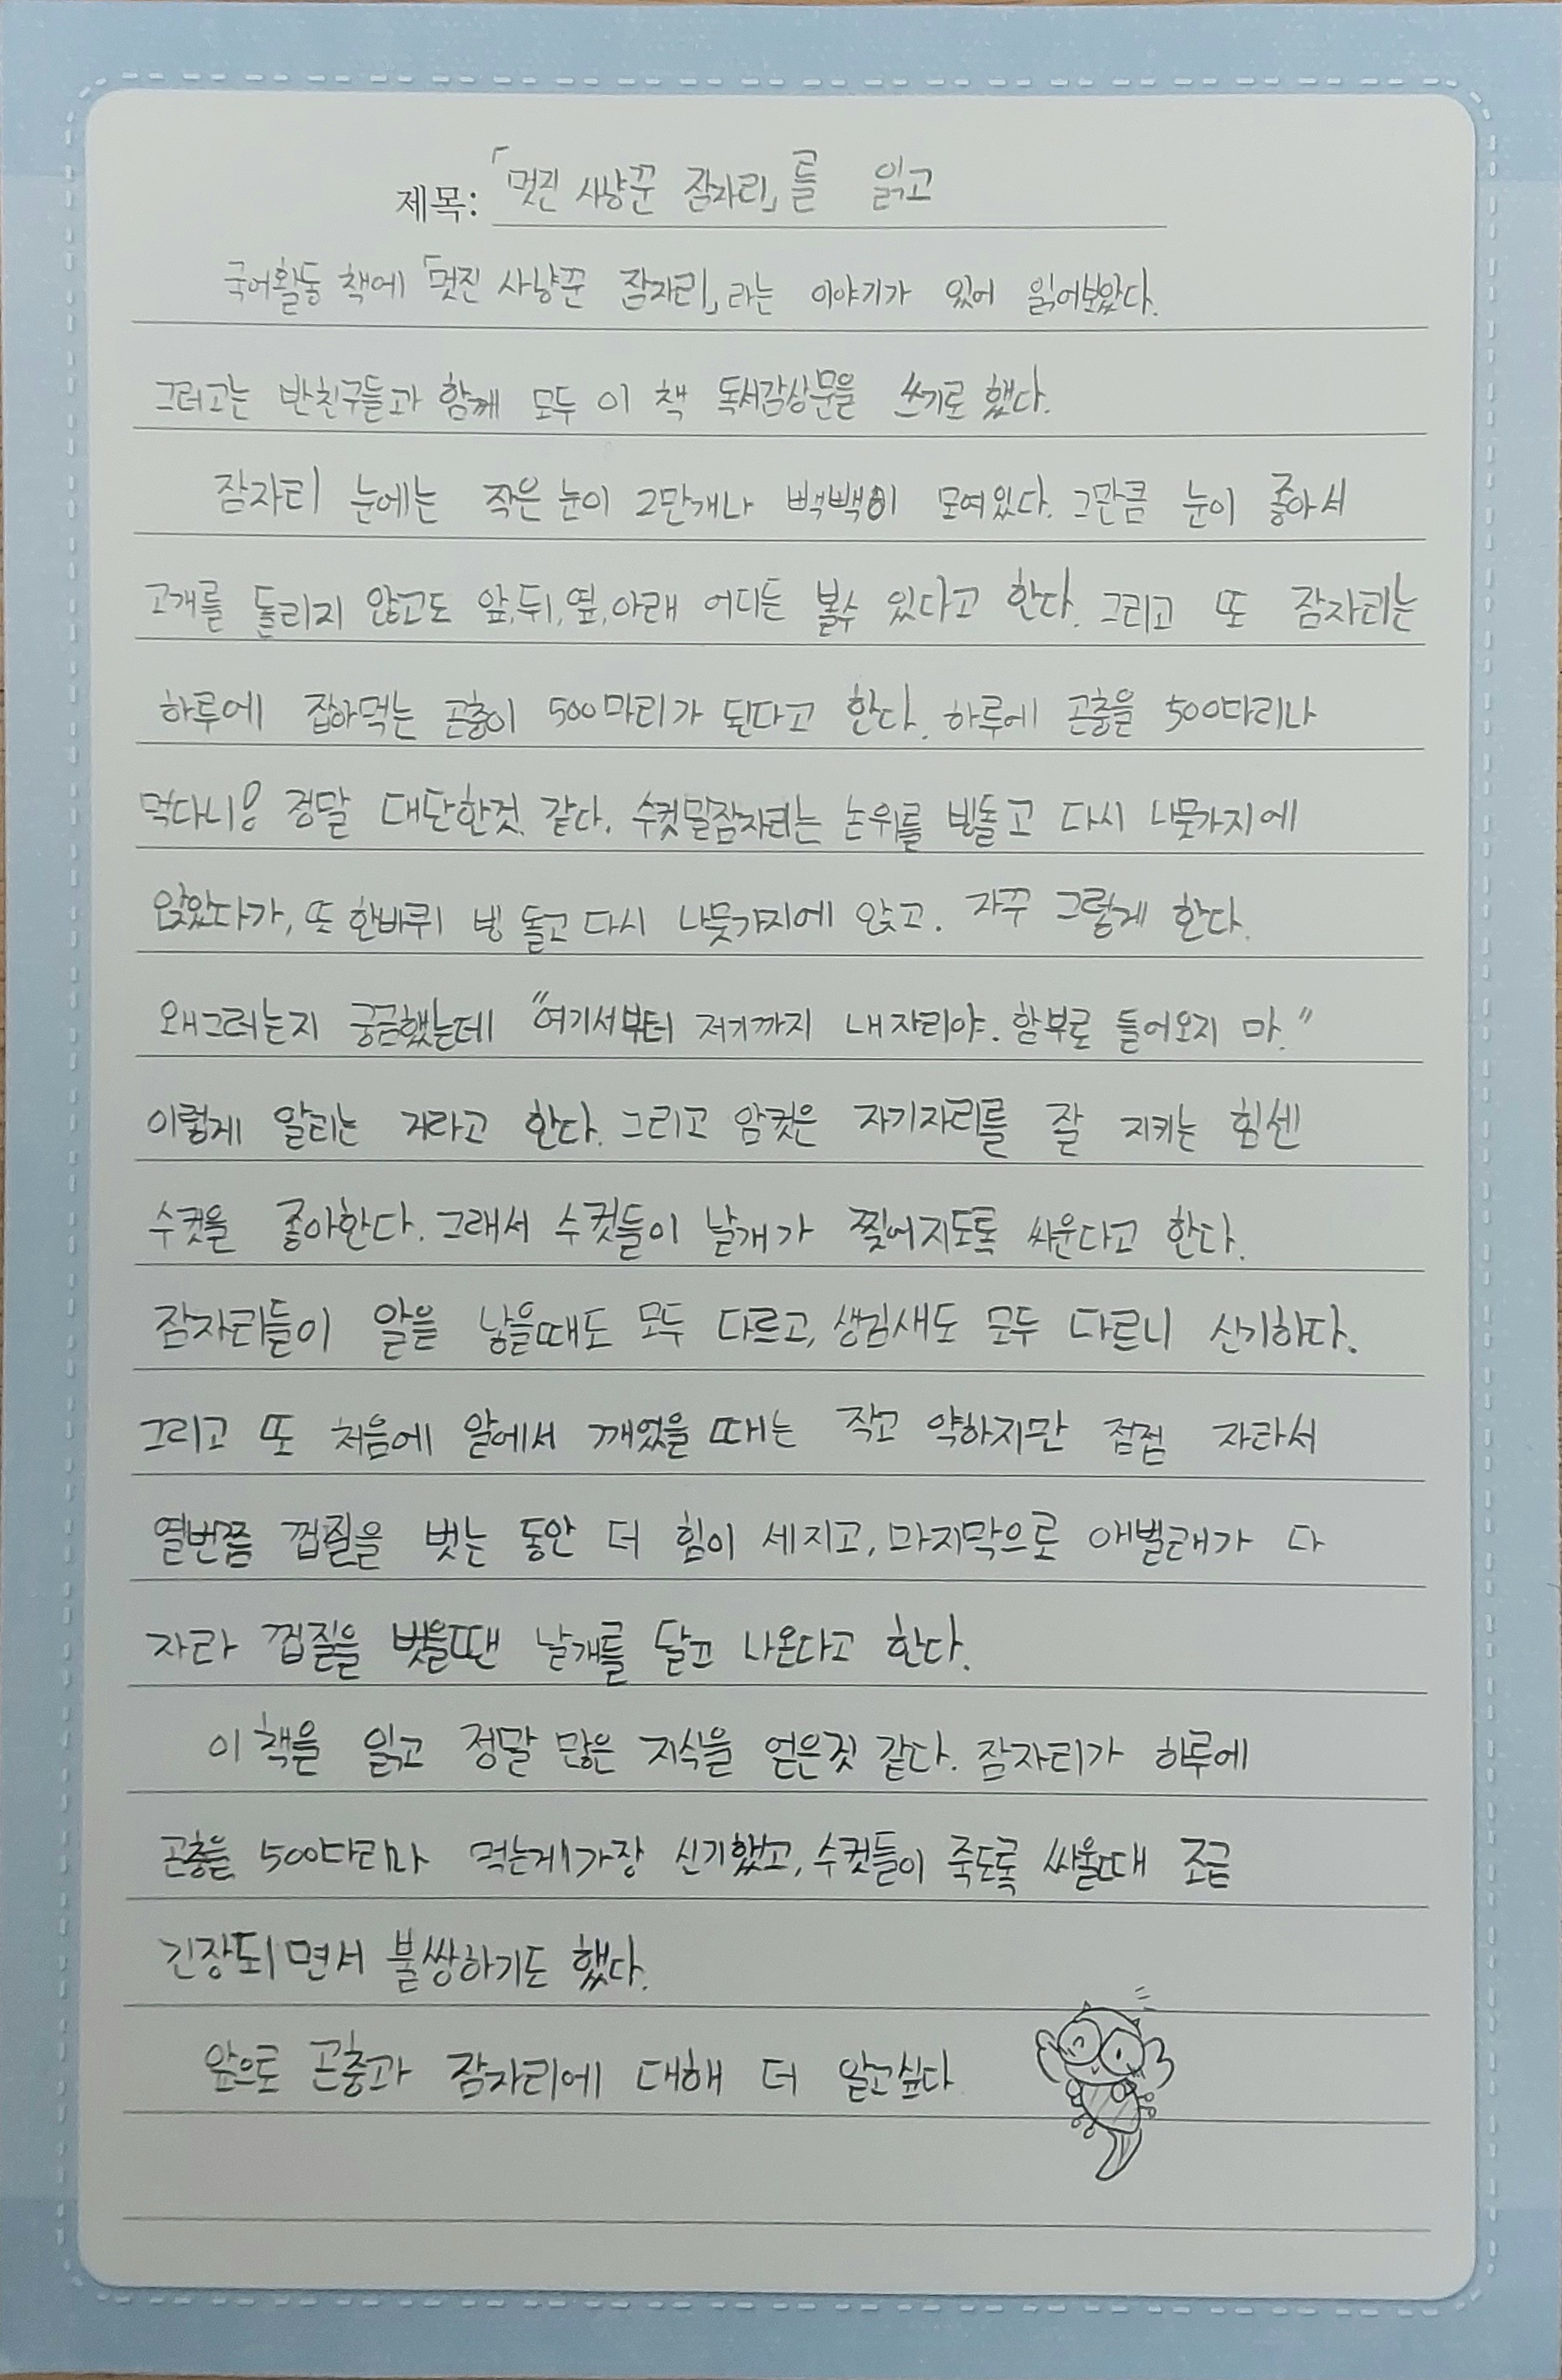 제목: 「멋진 사냥꾼 잠자리」를 읽고
국어활동 책에 「멋진 사냥꾼 잠자리」라는 이야기가 있어 읽어보았다.
그러고는 반친구들과 함께 모두 이 책 독서감상문을 쓰기로 했다.
잠자리 눈에는 작은 눈이 2만개나 빽빽히 모여있다. 그만큼 눈이 좋아서
고개를 돌리지 않고도 앞, 뒤, 옆, 아래 어디든 볼수 있다고 한다. 그리고 또 잠자리는
하루에 잡아먹는 곤충이 500마리가 된다고 한다. 하루에 곤충을 500마리나
먹다니! 정말 대단한것 같다. 수컷밀잠자리는 논위를 빙돌고 다시 나뭇가지에
앉았다가, 또 한바퀴 빙 돌고 다시 나뭇가지에 앉고. 자꾸 그렇게 한다.
왜그러는지 궁금했는데 "여기서부터 저기까지 내자리야. 함부로 들어오지 마."
이렇게 알리는 거라고 한다. 그리고 암컷은 자기자리를 잘 지키는 힘센
수컷을 좋아한다. 그래서 수컷들이 날개가 찢어지도록 싸운다고 한다.
잠자리들이 알을 낳을때도 모두 다르고, 생김새도 모두 다르니 신기하다.
그리고 또 처음에 알에서 깨었을 때는 작고 약하지만 점점 자라서
열번쯤 껍질을 벗는 동안 더 힘이 세지고, 마지막으로 애벌래가 다
자라 껍질을 벗을땐 날개를 달고 나온다고 한다.
이 책을 읽고 정말 많은 지식을 얻은것 같다. 잠자리가 하루에
곤충을 500마리나 먹는게 가장 신기했고, 수컷들이 죽도록 싸울때 조끔
긴장되면서 불쌍하기도 했다.
앞으로 곤충과 잠자리에 대해 더 알고싶다